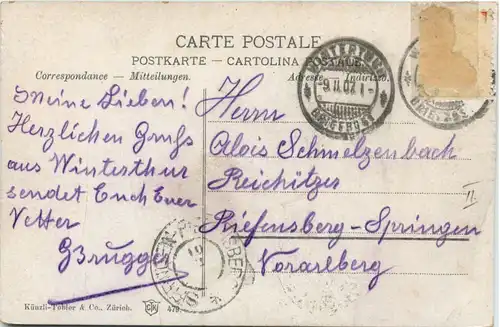 CARTE POSTALE
POSTKARTE - CARTOLINA POSTALE
Correspondance - Mitteilungen.
Adresse Indirizzo.
WINTERTHUR
-9.II.07. I-
BRIEFPOST
BRIEFPOST
Meine Lieben!
Herzlichen Gruss
aus Winterthur
sendet Euch Euer
Vetter
GBrugger
Herrn
Alois Schmelzenbach
Reichitzer
Riefensberg-Springen
II
Vorarlberg
Künzli-Tobler & Co., Zürich.